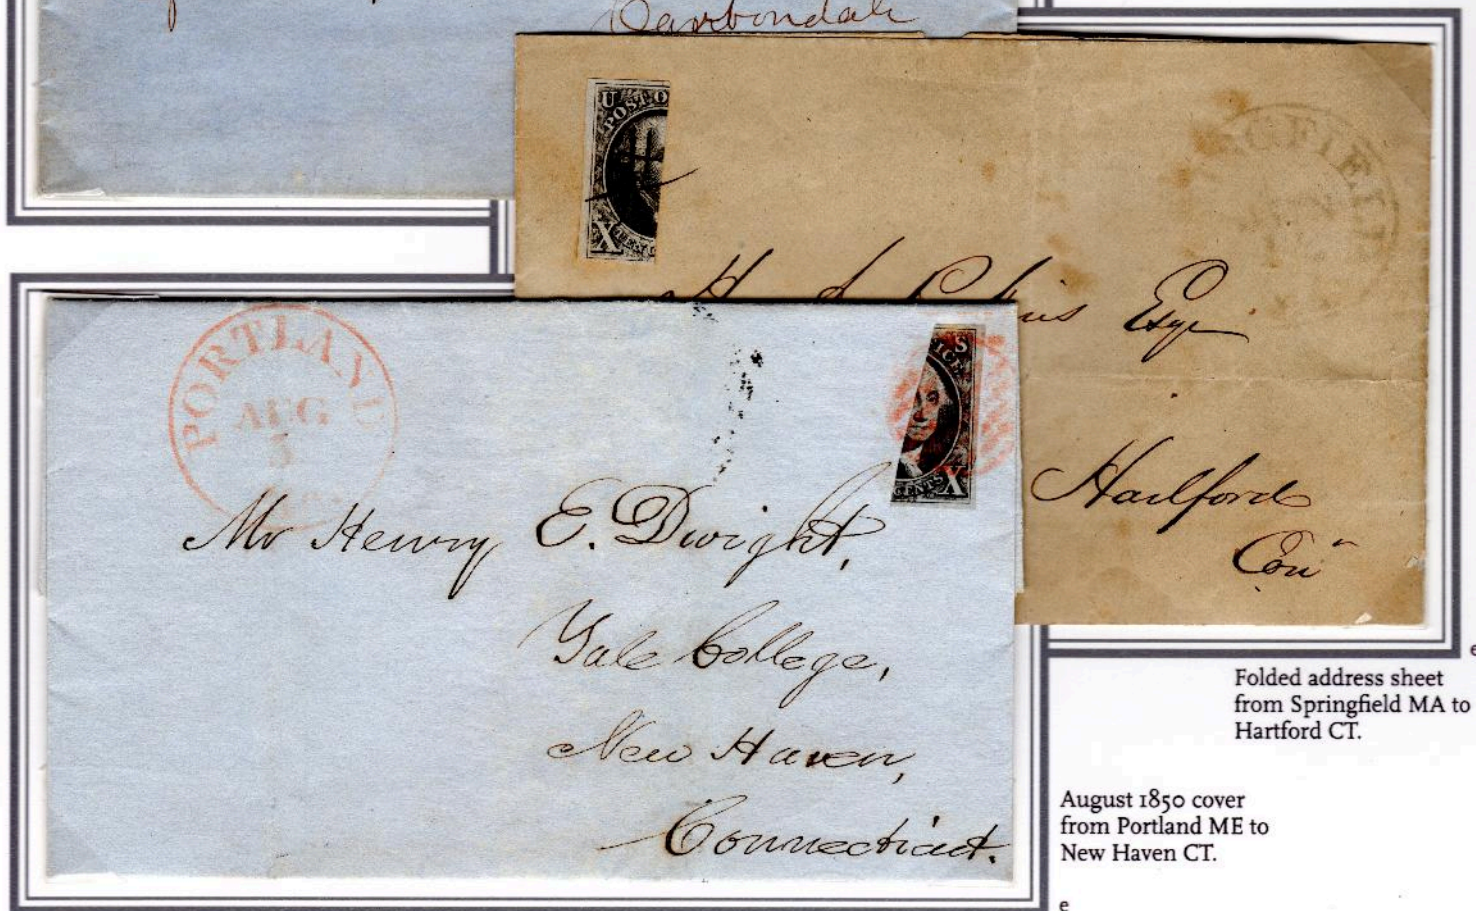 Carbondale
U
POST O
X
SPRINGFIELD
Esqr
Hartford
Con"
PORTLAND
AUG
5
Me.
S
ICE
CENTS X
Mr Henry E. Dwight,
Yale College,
New Haven,
Connecticut.
Folded address sheet
from Springfield MA to
Hartford CT.
August 1850 cover
from Portland ME to
New Haven CT.
e
e